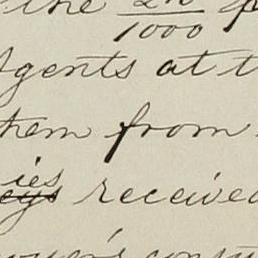 the 2n/1000
Agents at t
hem from
ies
eys received